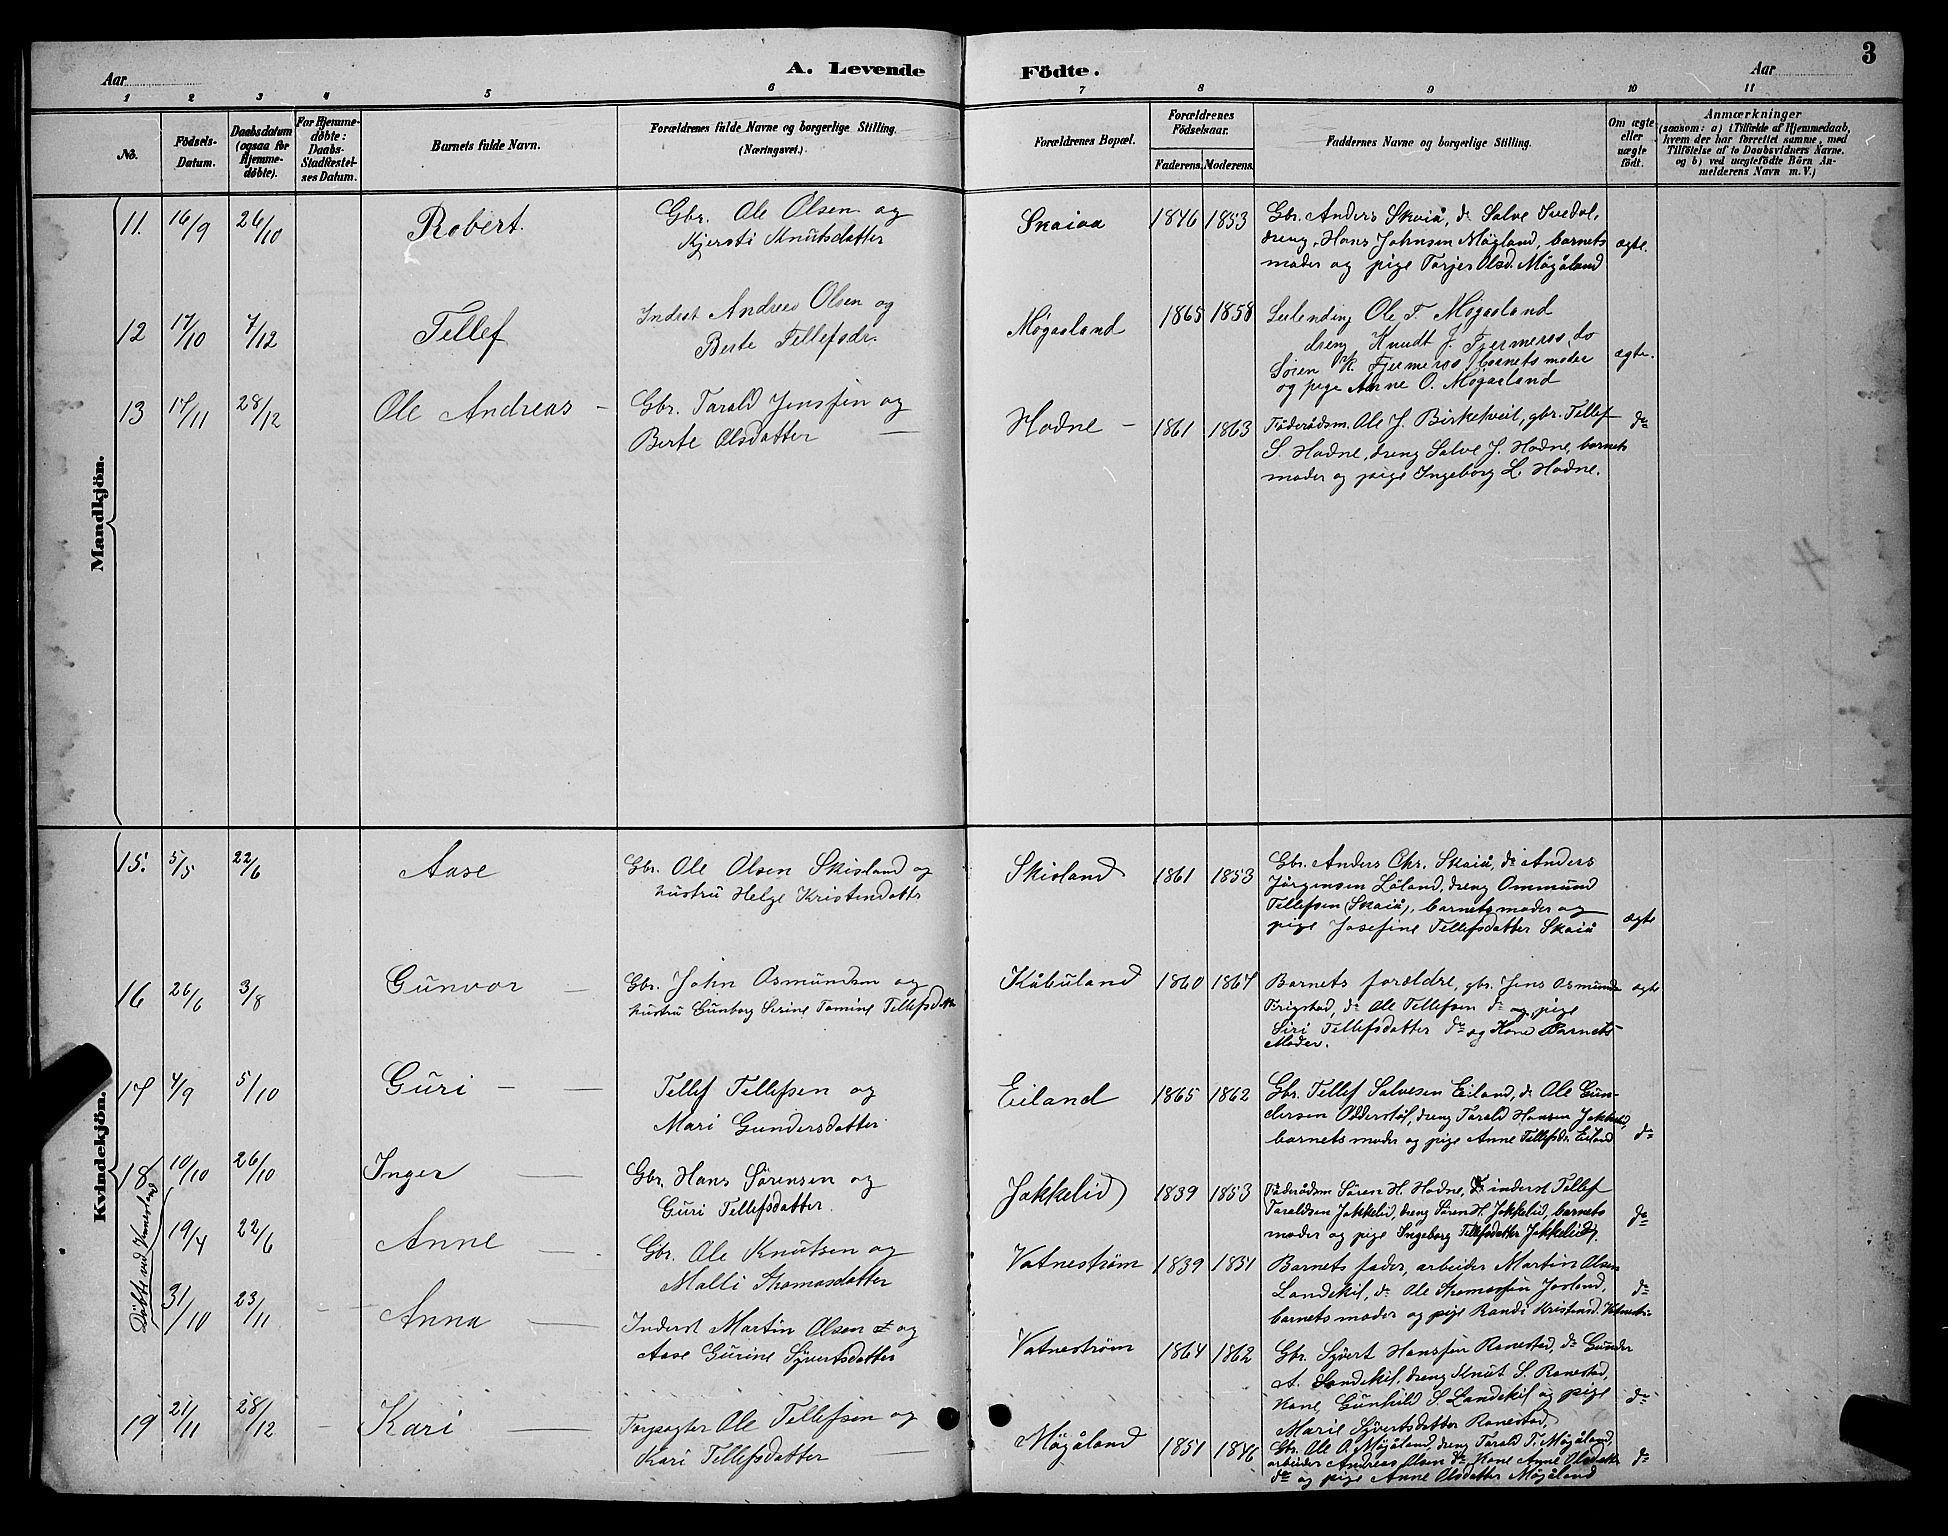 3
Aar
A. Levende Födte.
Aar
1 2 3 4 5 6 7 8 9 10 11
No.
Födsels-Datum.
Daabsdatum (ogsaa for Hjemme-döbte).
For Hjemme-döbte: Daabs-Stadfæstel-ses Datum.
Barnets fulde Navn.
Forældrenes fulde Navne og borgerlige Stilling.
(Næringsvei.)
Forældrenes Bopæl.
Forældrenes Födselsaar.
Faderens. Moderens.
Faddernes Navne og borgerlige Stilling.
Om ægte eller uægte födt.
Anmærkninger
(saasom: a) i Tilfælde af Hjemmedaab, hvem der har forrettet samme, med Tilföielse af to Daabsvidners Navne. og b) ved uægtefödte Börn An-melderens Navn m. V.)
Mandkjön.
11. 16/9 26/10 Robert.
Gbr. Ole Olsen og
Kjersti Knutsdatter
Skaiaa 1846 1853
Gbr. Anders Skaiå, do Salve Svedal,
dreng Hans Johnsen Mögland, barnets
moder og pige Tarjer Olsd. Mögåland
ægte.
12 17/10 7/12 Tellef
Inderst Andreas Olsen og
Berte Tellefsdr.
Møgaaland 1865 1858
Leilending Ole T. Mogaaland
dreng Knudt J. Fjermeros, do
Søren K. Fjermeros, barnets moder
og pige Anne O. Møgaaland
ægte.
13 17/11 28/12 Ole Andreas -
Gbr. Tarald Jensen og
Berte Olsdatter
Hodne - 1861 1863
Föderådsm. Ole J. Birketveit, gbr. Tellef
S. Hodne, dreng Salve J. Hodne, barnets
moder og pige Ingeborg L. Hodne.
do
4
Kvindekjön.
15. 5/5 22/6 Aase
Gbr. Ole Olsen Skisland og
hustru Helge Kristensdatter
Skisland 1861 1853
Gbr. Anders Chr. Skaiå, do Anders
Jörgensen Løland, dreng Ommund
Tellefsen (Skaiå), barnets moder og
pige Josefine Tellefsdatter Skaiå
ægte
16 26/6 3/8 Gunvor -
Gbr. John Osmundsen og
hustru Gunborg Serine Tomine Tellefsdatter
Kåbuland 1860 1864
Barnets forældre, gbr. Jens Osmunds
Brigstad, do Ole Tellefsen do og pige
Siri Tellefsdatter do og Kone Barnets
Moder.
ægte
17 4/9 5/10 Guri -
Tellef Tellefsen og
Mari Gundersdatter
Eiland 1865 1862
Gbr. Tellef Salvesen Eiland, do Ole Gun-
dersen Odderstøl, dreng Tarald Hansen Jokkelid,
barnets moder og pige Anne Tellefsdr. Eiland
do
18 10/10 26/10 Inger
Gbr. Hans Sörensen og
Guri Tellefsdatter.
Jokkelid 1839 1853
Föderådsm Sören H. Hodne, inderst Tellef
Taraldsen Jokkelid, dreng Sören H. Jokkelid, barnets
moder og pige Ingeborg Tellefsdatter Jokkelid.
do
Döbte ved
19/4 22/6 Anne
Gbr. Ole Knutsen og
Malli Thomasdatter
Vatnestrøm 1839 1851
Barnets fader, arbeider Martin Olsen
Landekil, do Ole Thomassen Jorland,
barnets moder og pige Randi Kristensd. Vatnestr.
do
31/10 23/11 Anna
Inderst Martin Olsen og
Aase Gurine Syvertsdatter
Vatnestrøm 1864 1862
Gbr. Syvert Hanssen Ranestad, do Gunder
A. Landekil, dreng Knut S. Ranestad,
kone Gunhild S. Landekil og pige
Marie Syvertsdatter Ranestad,
do
19 21/11 28/12 Kari
Forpagter Ole Tellefsen og
Kari Tellefsdatter
Mögåland 1851 1846
Gbr. Ole O. Mögåland, dreng Tarald T. Mögåland,
arbeider Andreas Olsen do, Kone Anne Olsdatter
do og pige Anne Olsdatter Mögåland
do